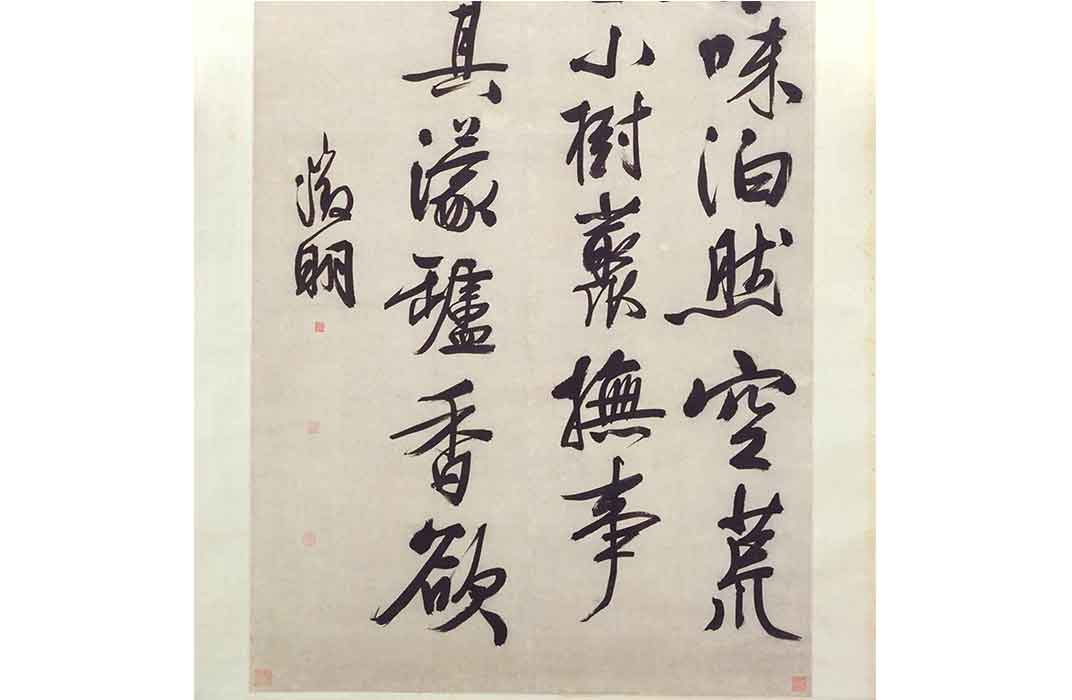 味泊然空荒
小樹叢撫事
其濛罏香欲
徵明